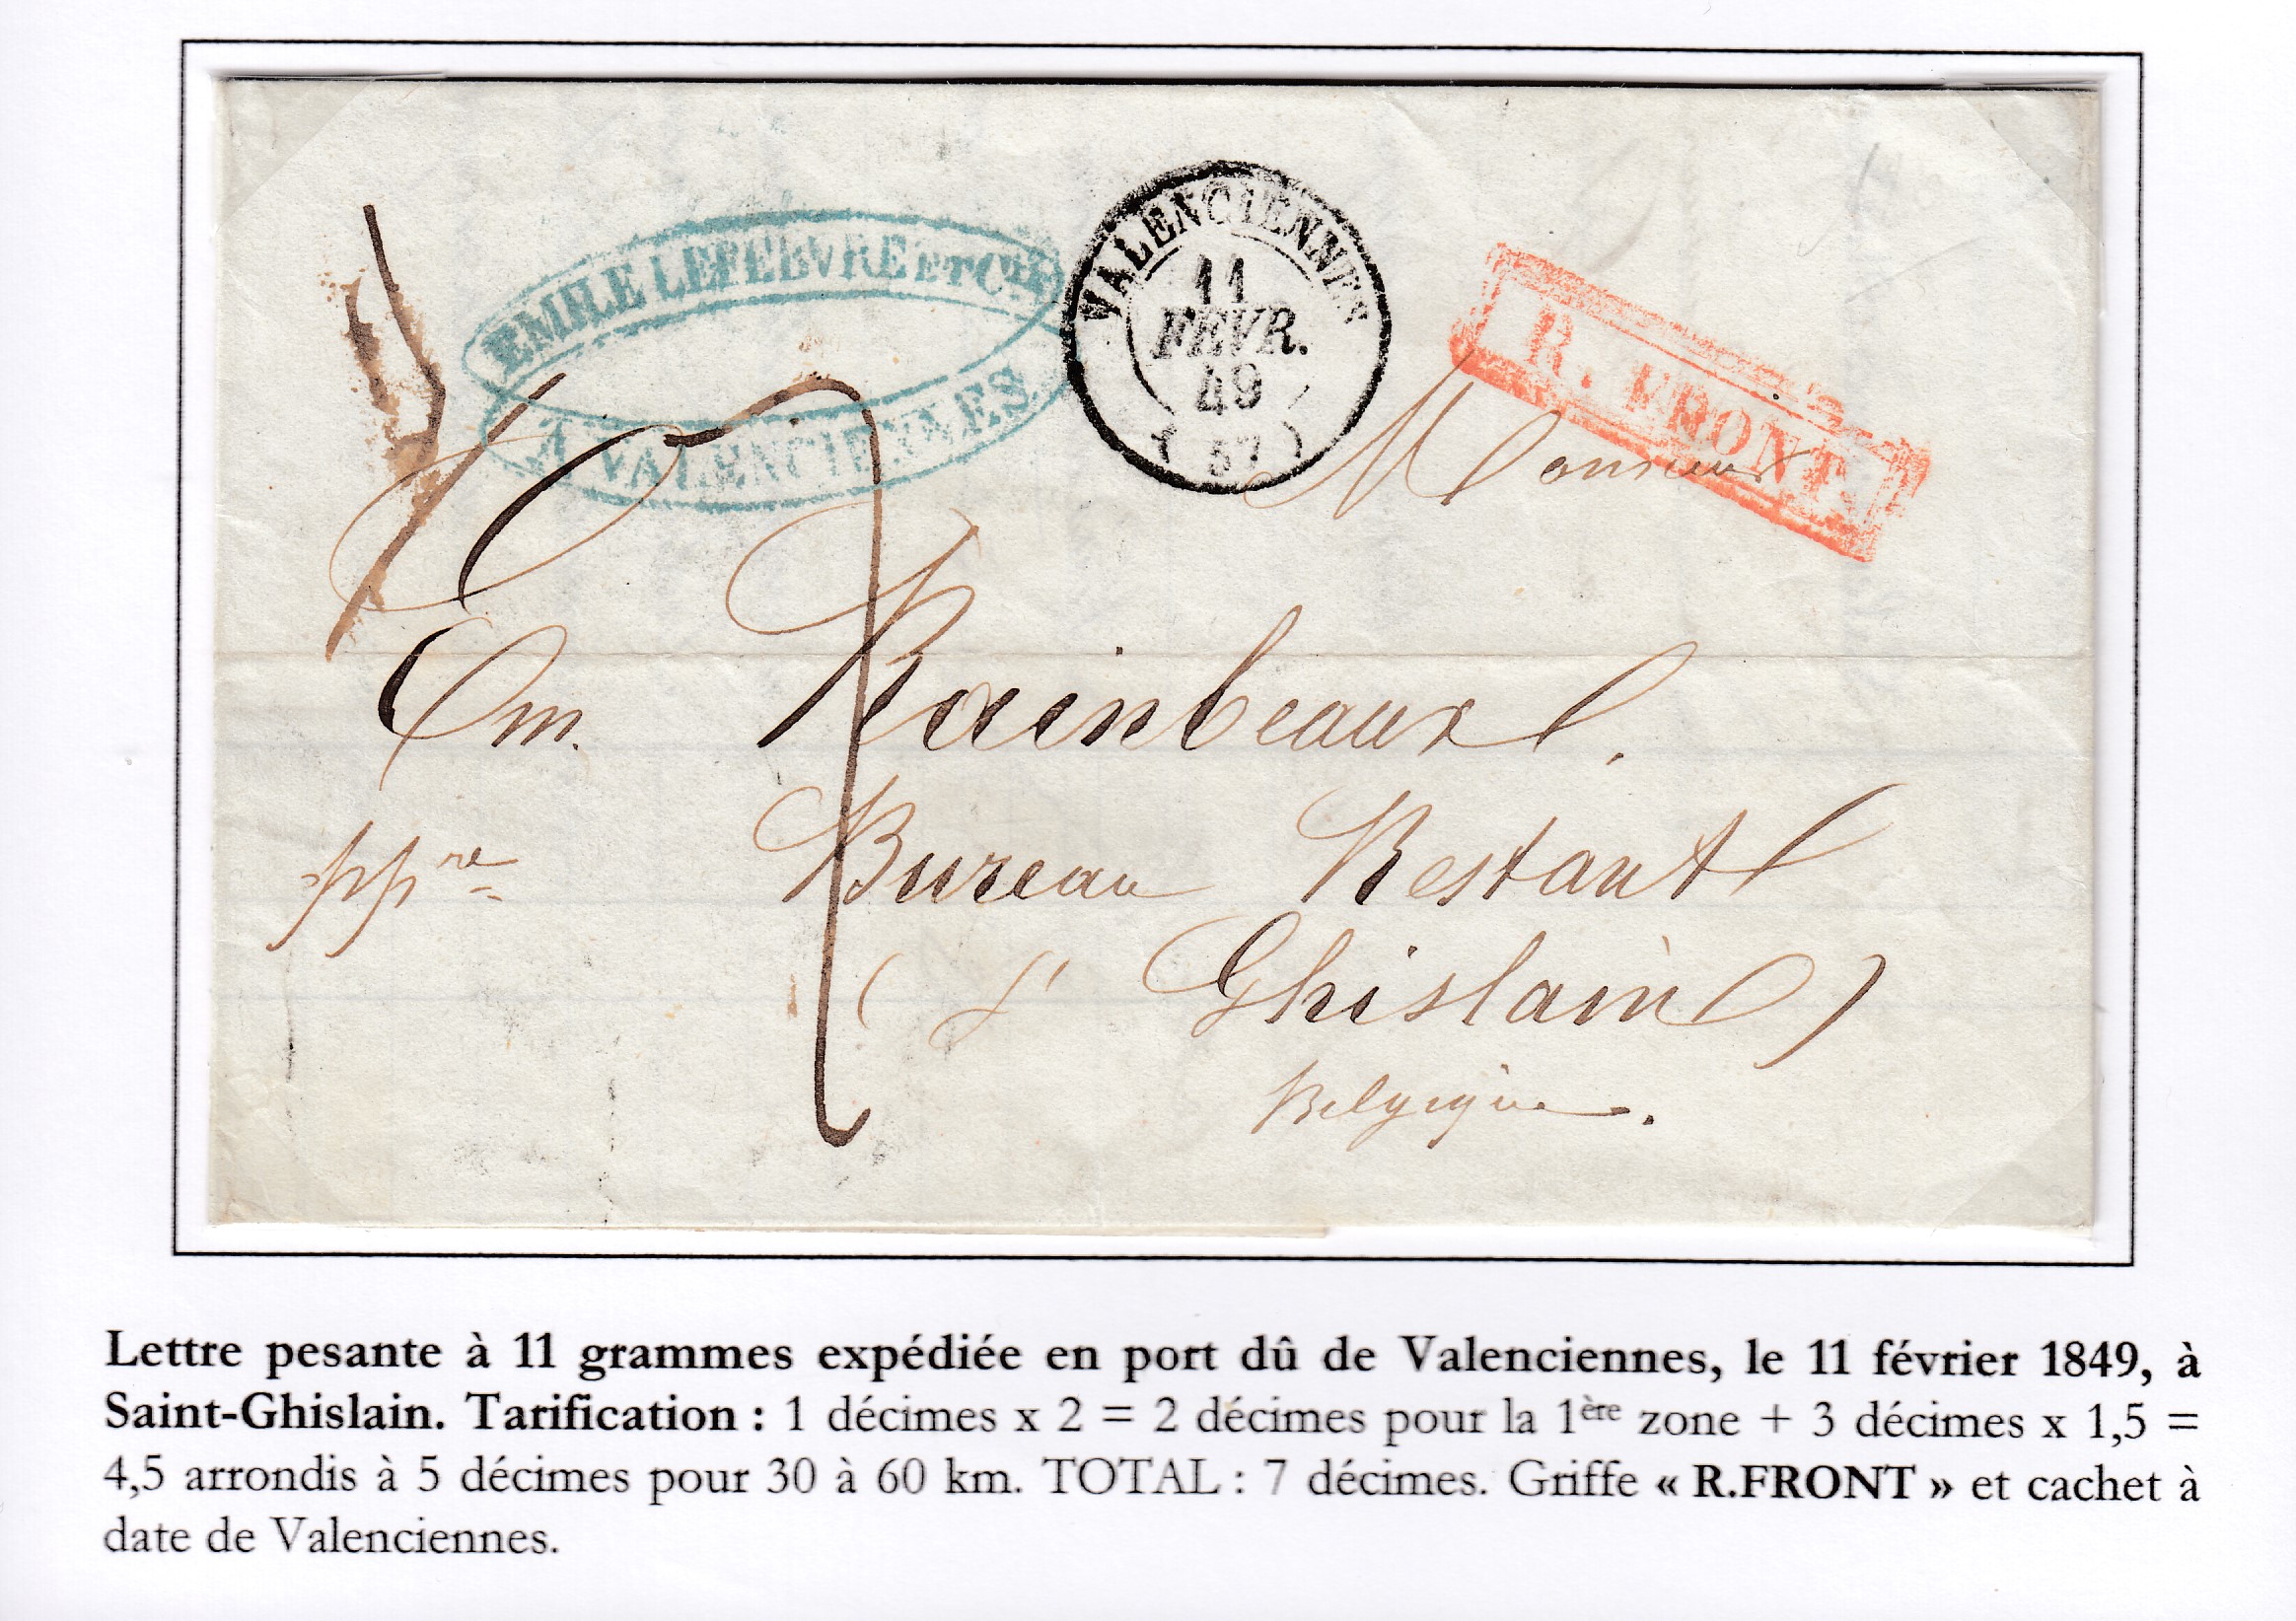 EMILE LEFEBVRE ET CIE
A VALENCIENNES
VALENCIENNES
11
FEVR.
49
( 57 )
R. FRONT.
Monsieur
Em. Rainbeaux.
ppre Bureau Restant
( St Ghislain )
Belgique.
Lettre pesante à 11 grammes expédiée en port dû de Valenciennes, le 11 février 1849, à
Saint-Ghislain. Tarification : 1 décimes x 2 = 2 décimes pour la 1ère zone + 3 décimes x 1,5 =
4,5 arrondis à 5 décimes pour 30 à 60 km. TOTAL : 7 décimes. Griffe « R.FRONT » et cachet à
date de Valenciennes.